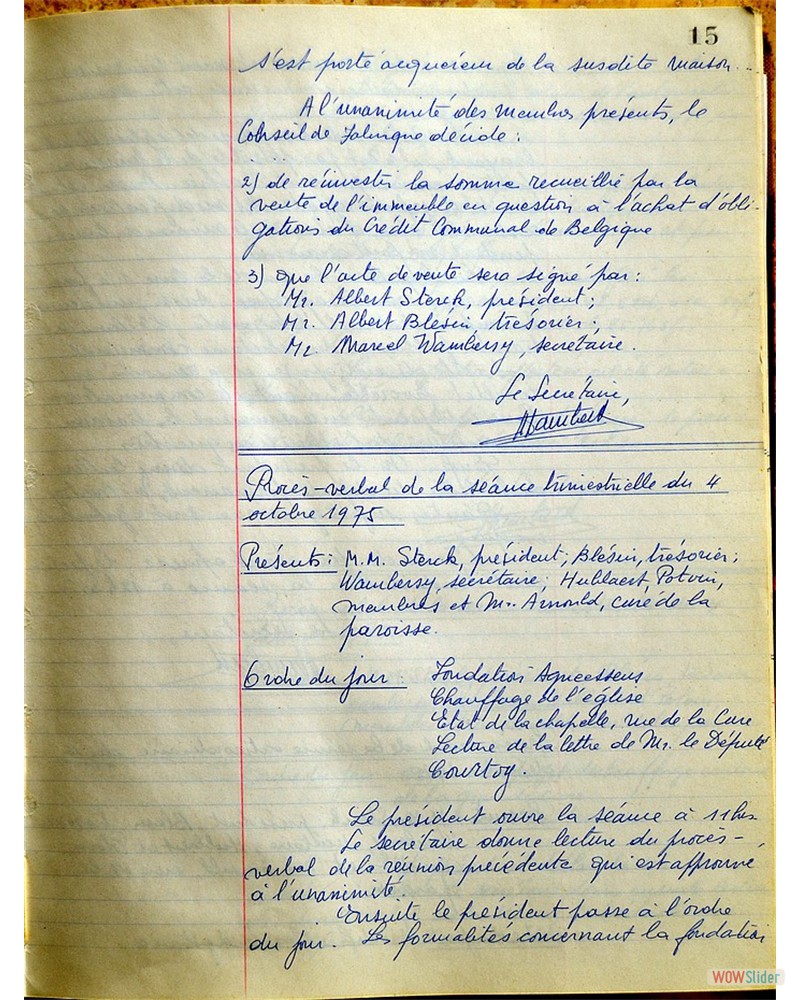 15
s'est porté acquéreur de la susdite maison.
A l'unanimité des membres présents, le
Conseil de Fabrique décide :
2) de réinvestir la somme recueillie par la
vente de l'immeuble en question à l'achat d'obli-
gations du Crédit Communal de Belgique
3) que l'acte de vente sera signé par :
Mr. Albert Sterck, président ;
Mr. Albert Blésin, trésorier ;
Mr Marcel Wambersy, secrétaire.
Le Secrétaire,
Procès-verbal de la séance trimestrielle du 4
octobre 1975
Présents : M.M. Sterck, président ; Blésin, trésorier ;
Wambersy, secrétaire ; Hublaert, Potvin,
membres et Mr. Arnould, curé de la
paroisse.
Ordre du jour : Fondation Agneessens
Chauffage de l'église
Etat de la chapelle, rue de la Cure
Lecture de la lettre de Mr. le Député
Courtoy.
Le président ouvre la séance à 11 hs
Le secrétaire donne lecture du procès-
verbal de la réunion précédente qui est approuvé
à l'unanimité.
Ensuite le président passe à l'ordre
du jour. Les formalités concernant la fondation
WOWSlider